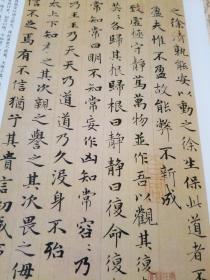 之徐清孰能安以動之徐生保此道者不
盈夫惟不盈故能弊不新成
致虛極守靜篤萬物並作吾以觀其復
芸各歸其根歸根曰靜靜曰復命復
常知常曰明不知常妄作凶知常容容乃
乃王王乃天天乃道道乃久没身不殆
太上下知之其次親之譽之其次畏之侮
信不足焉有不信猶兮其貴言